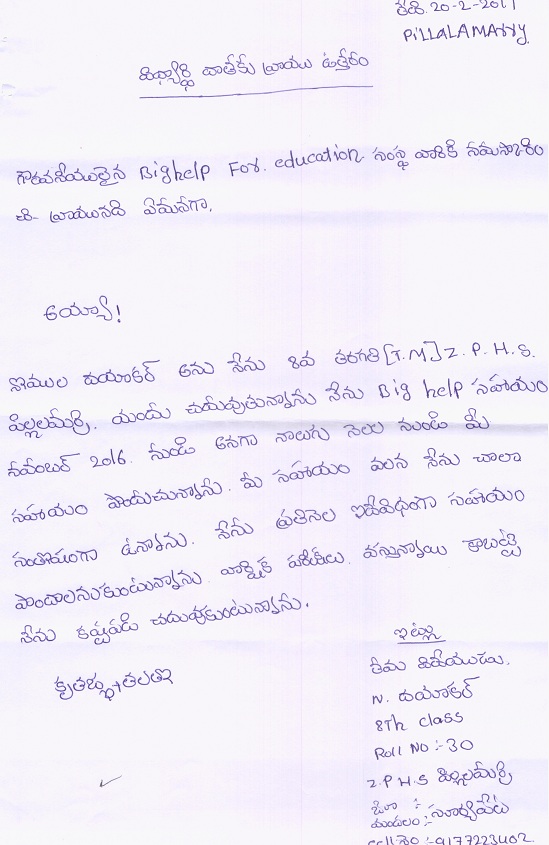 తేది. 20-2-2017
PILLALAMArry
విద్యార్థి చాతీకు వ్రాయు ఉత్తరం
గౌరవనీయులైన Big help For. education సంస్థ వారికి నమస్కారం
చి- వ్రాయునది ఏమనగా,
అయ్యా!
నోముల దయాకర్ అను నేను 8వ తరగతి [T.M] Z. P. H. S.
పిల్లలమర్రి. యందు చదువుతున్నాను నేను Big help సహాయం
నవంబర్ 2016. నుండి అనగా నాలుగు నెలల నుండి మీ
సహాయం పొందుచున్నాను. మీ సహాయం వలన నేను చాలా
సంతోషంగా ఉన్నాను. నేను ప్రతినెల ఇదేవిధంగా సహాయం
పొందాలనుకుంటున్నాను. వార్షిక పరీక్షలు వస్తున్నాయి కాబట్టి
నేను కష్టపడి చదువుకుంటున్నాను.
కృతజ్ఞతలతో
ఇట్లు
తమ విధేయుడు.
N. దయాకర్
8Th class
Roll No :- 30
Z.P.H.S పిల్లలమర్రి
జిల్లా :
మండలం: సూర్యాపేట
cell no :- 9177223402